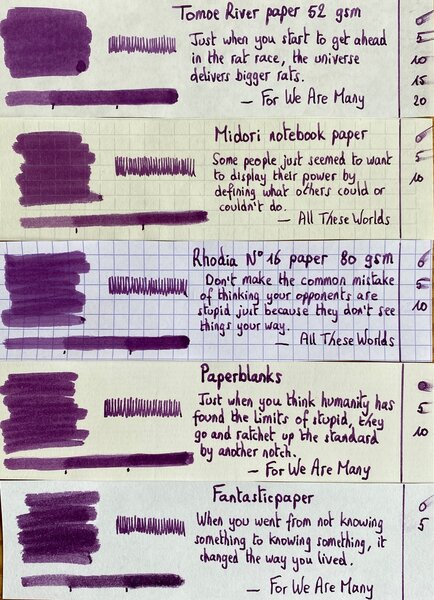 Tomoe River paper 52 gsm
Just when you start to get ahead
in the rat race, the universe
delivers bigger rats.
— For We Are Many
0
5
10
15
20
Midori notebook paper
Some people just seemed to want
to display their power by
defining what others could or
couldn't do.
— All These Worlds
0
5
10
Rhodia N° 16 paper 80 gsm
Don't make the common mistake
of thinking your opponents are
stupid just because they don't see
things your way.
— All These Worlds
0
5
10
Paperblanks
Just when you think humanity has
found the limits of stupid, they
go and ratchet up the standard
by another notch.
— For We Are Many
0
5
10
Fantasticpaper
When you went from not knowing
something to knowing something, it
changed the way you lived.
— For We Are Many
0
5